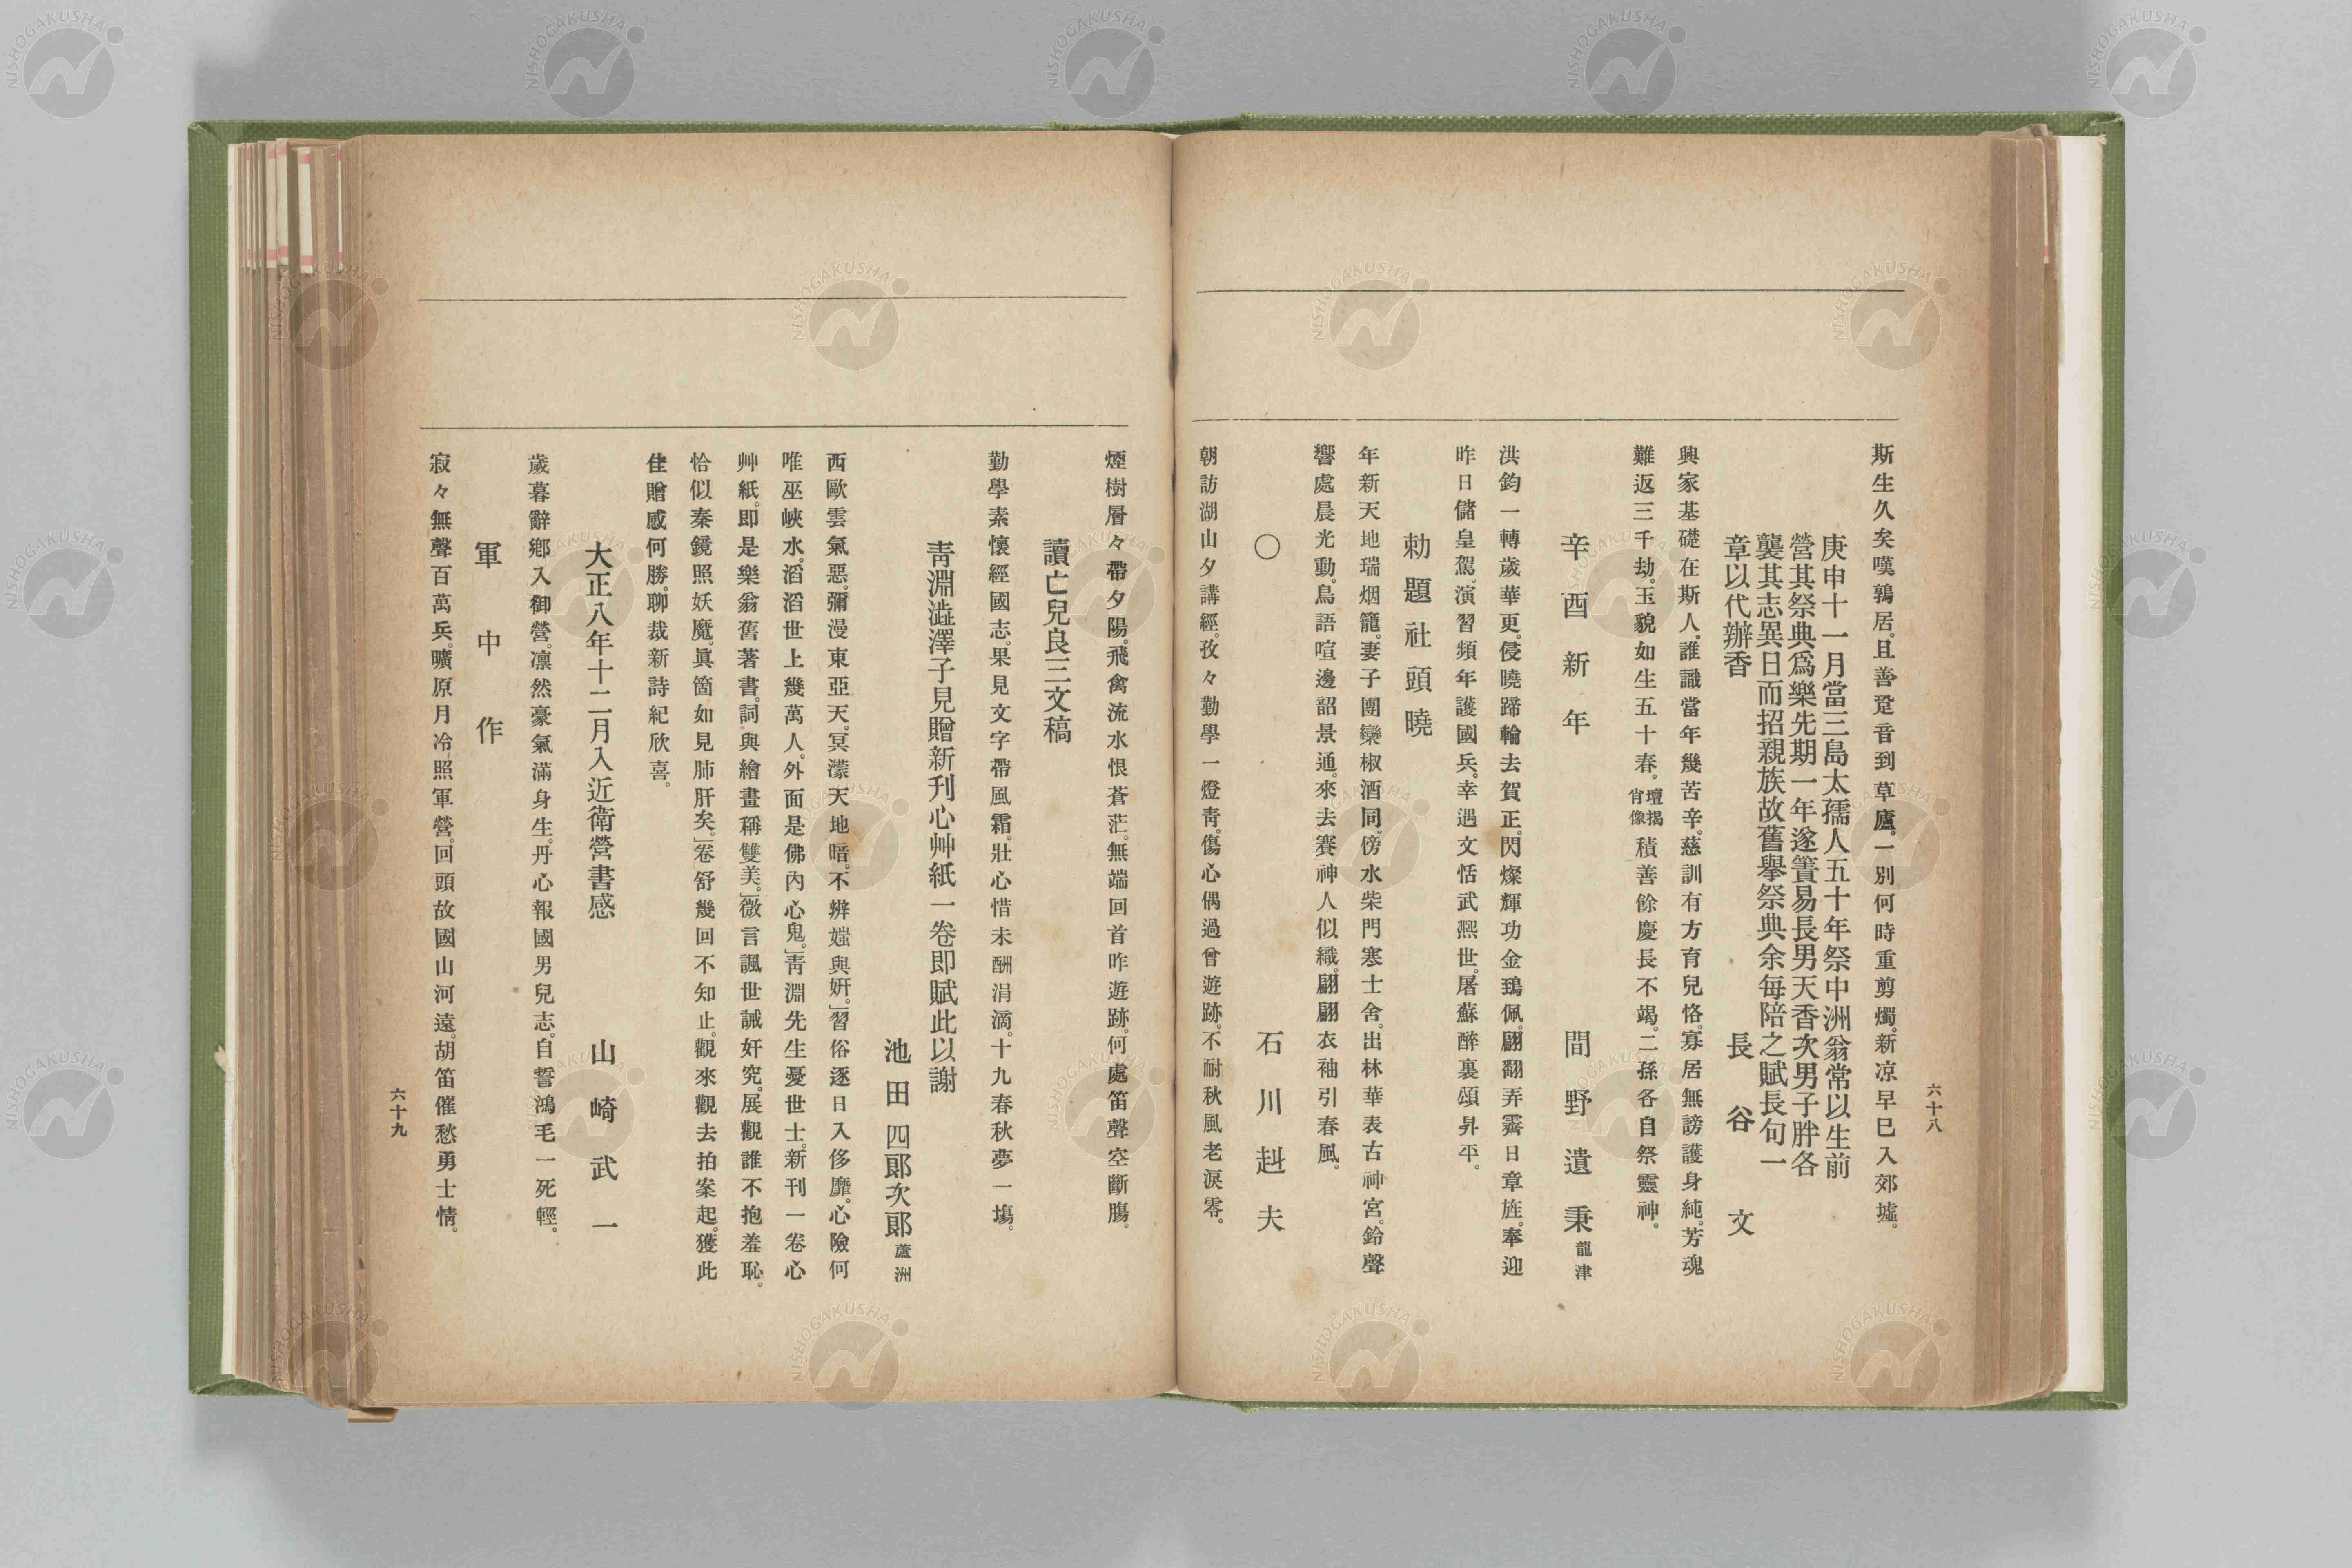 六十八
斯生久矣嘆鶉居。且善跫音到草廬。一別何時重剪燭。新凉早巳入郊墟。
庚申十一月當三島太孺人五十年祭中洲翁常以生前
營其祭典爲樂先期一年遂簀易長男天香次男子胖各
襲其志異日而招親族故舊擧祭典余每陪之賦長句一
章以代辦香 長谷文
興家基礎在斯人。誰識當年幾苦辛。慈訓有方育兒恪。寡居無謗護身純。芳魂
難返三千劫。玉貌如生五十春。壇揭肖像積善餘慶長不竭。二孫各自祭靈神。
辛酉新年 間野遺秉龍津
洪鈞一轉歲華更。侵曉蹄輪去賀正。閃燦輝功金鵄佩。翩翻弄霽日章旌。奉迎
昨日儲皇駕。演習頻年護國兵。幸遇文恬武熙世。屠蘇醉裏頌昇平。
勅題社頭曉
年新天地瑞烟籠。妻子團欒椒酒同。傍水柴門寒士舍。出林華表古神宮。鈴聲
響處晨光動。鳥語喧邊韶景通。來去賽神人似織。翩翩衣袖引春風。
〇 石川赳夫
朝訪湖山夕講經。孜々勤學一燈靑。傷心偶過曾遊跡。不耐秋風老淚零。
煙樹層々帶夕陽。飛禽流水恨蒼茫。無端回首昨遊跡。何處笛聲空斷膓。
讀亡兒良三文稿
勤學素懷經國志。果見文字帶風霜。壯心惜未酬涓滴。十九春秋夢一塲。
靑淵澁澤子見贈新刊心艸紙一卷卽賦此以謝
池田四郞次郞蘆洲
西歐雲氣惡。彌漫東亞天。冥濛天地暗。不辨媸與姸。」習俗逐日入侈靡。心險何
唯巫峽水。滔滔世上幾萬人。外面是佛內心鬼。」靑淵先生憂世士。新刊一卷心
艸紙。卽是樂翁舊著書。詞與繪畫稱雙美。」微言諷世誡奸宄。展觀誰不抱羞恥。
恰似秦鏡照妖魔。眞箇如見肺肝矣。」卷舒幾回不知止。觀來觀去拍案起。獲此
佳贈感何勝。聊裁新詩紀欣喜。
大正八年十二月入近衛營書感 山崎武一
歲暮辭鄕入御營。凛然豪氣滿身生。丹心報國男兒志。自誓鴻毛一死輕。
軍中作
寂々無聲百萬兵。曠原月冷照軍營。回頭故國山河遠。胡笛催愁勇士情。
六十九
NISHOGAKUSHA